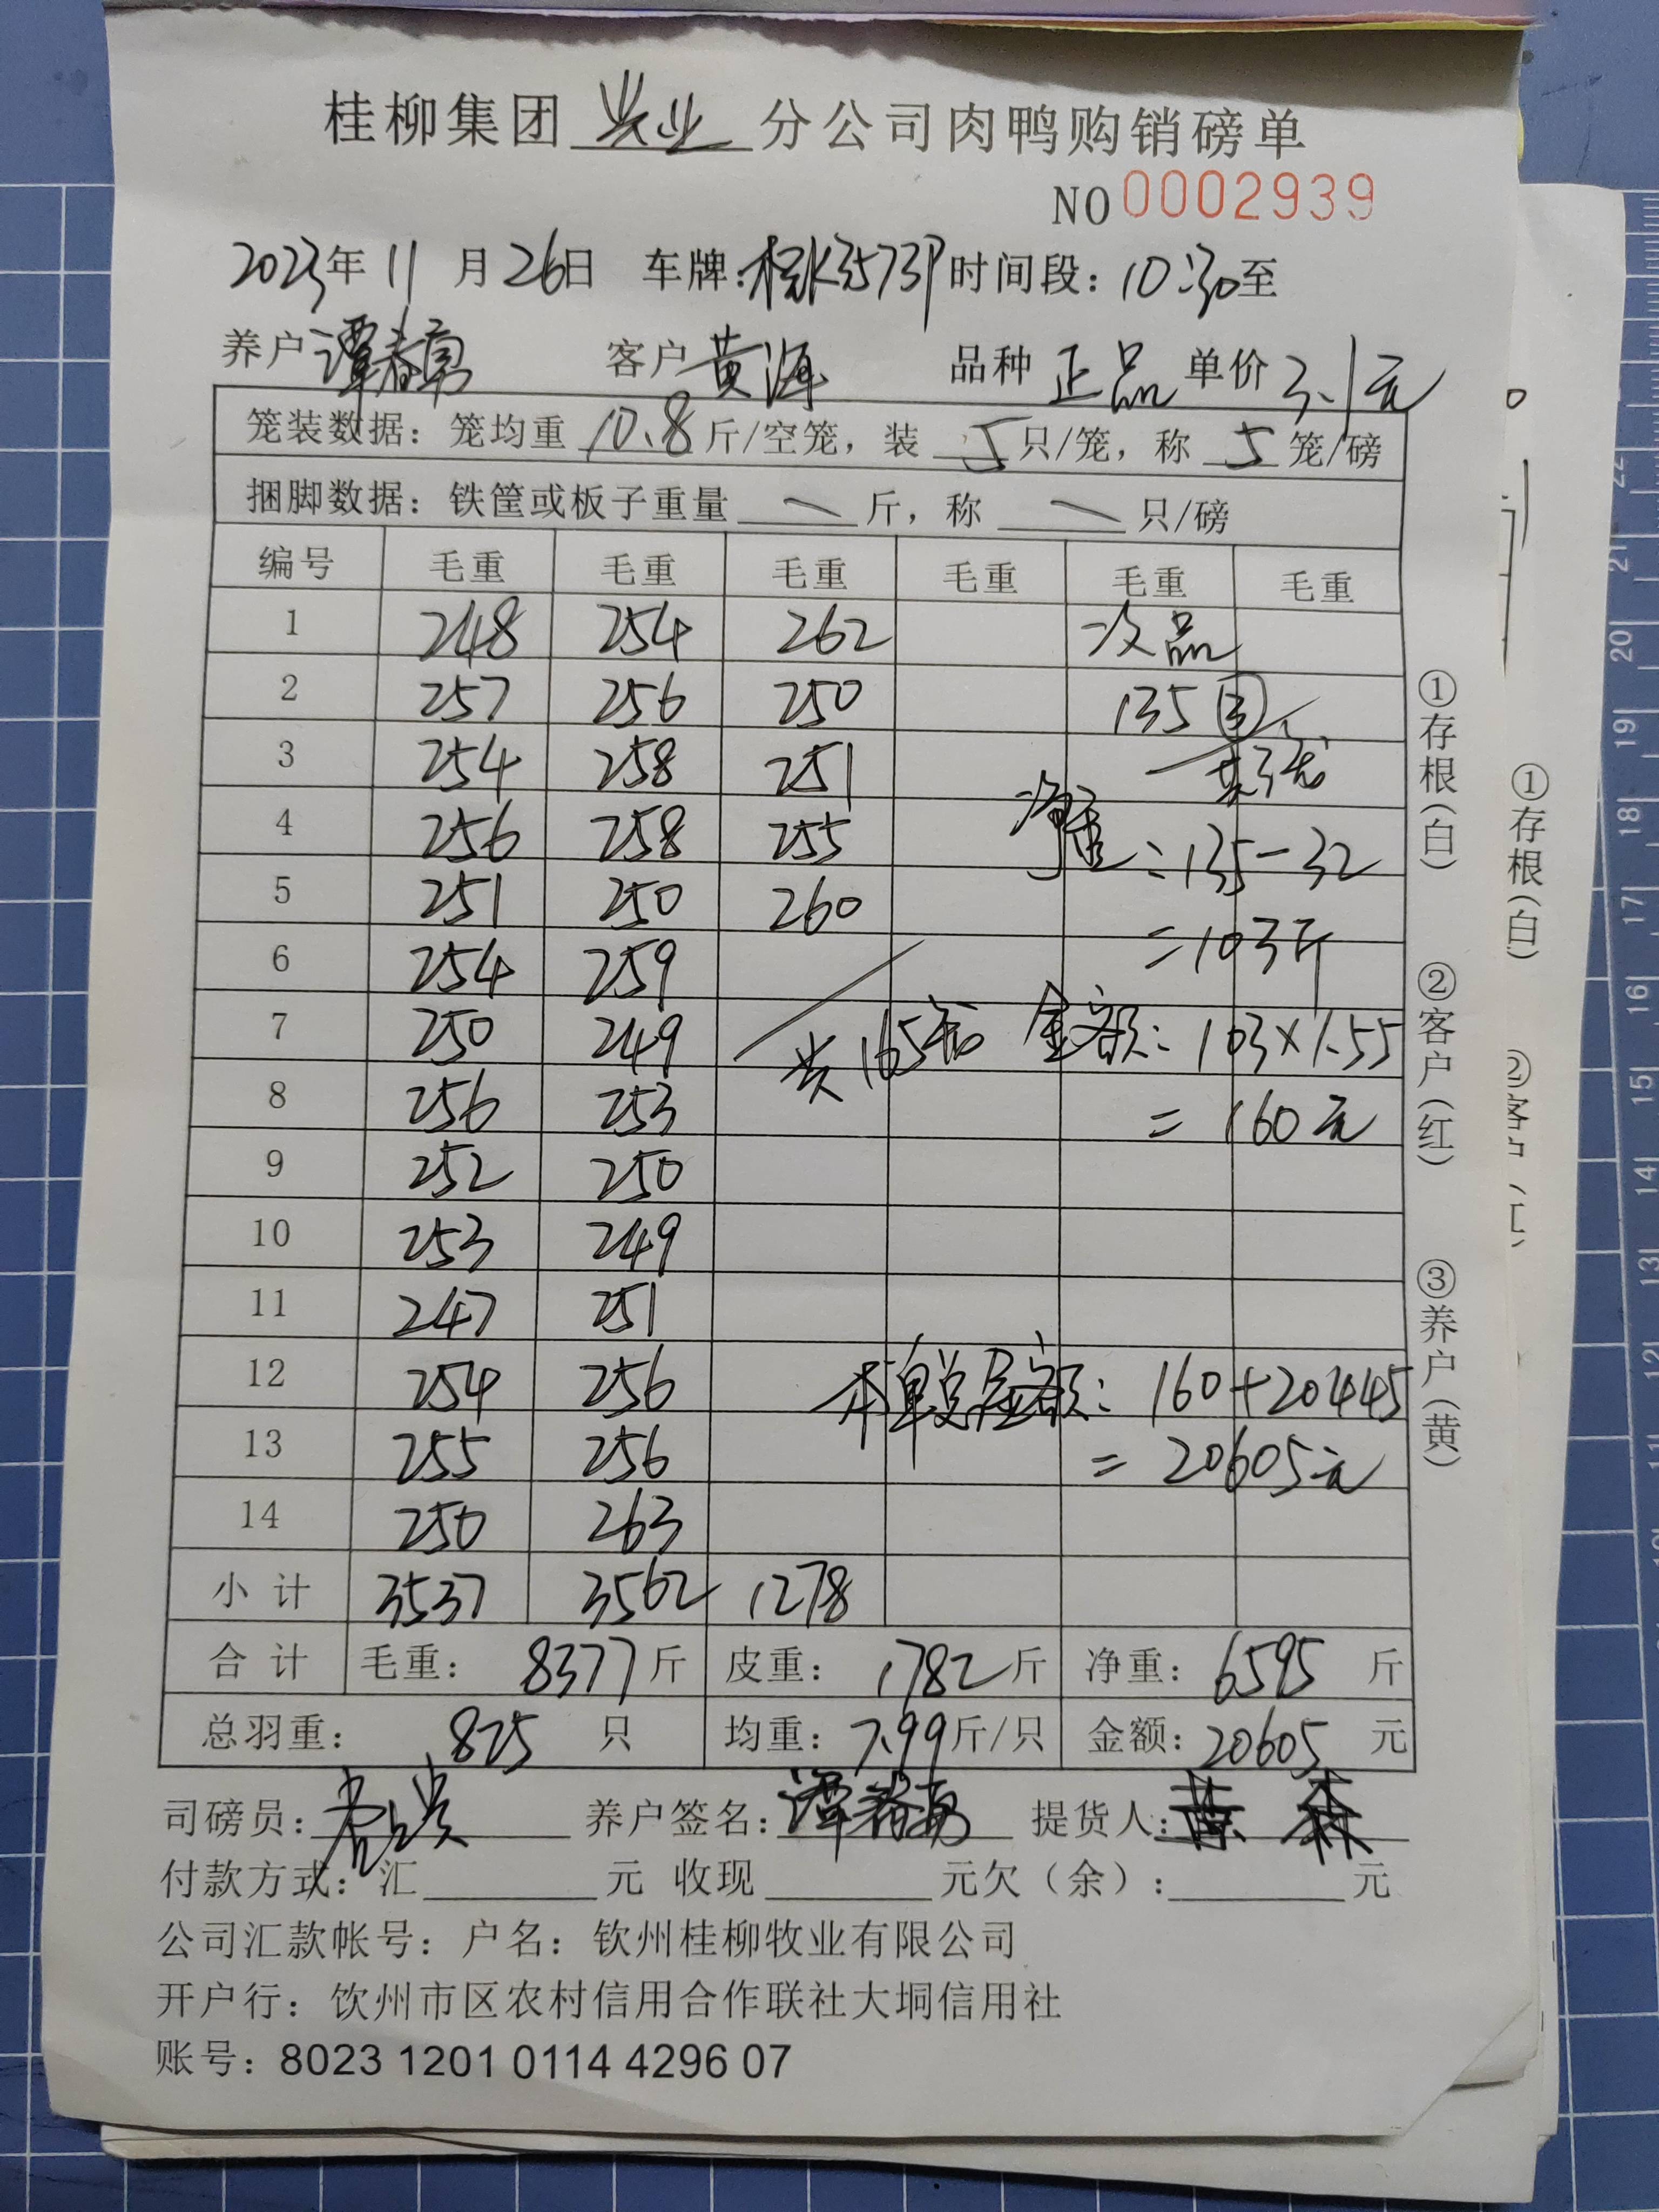 桂柳集团 兴业 分公司肉鸭购销磅单
NO 0002939
2023年 11 月 26日 车牌:桂K3573P 时间段: 10:30至
养户 谭春勇 客户 黄海 品种 正品 单价 3.1元
笼装数据: 笼均重 10.8 斤/空笼, 装 5 只/笼, 称 5 笼/磅
捆脚数据: 铁筐或板子重量 斤, 称 只/磅
编号 毛重 毛重 毛重 毛重 毛重 毛重
1 248 254 262 次品
2 257 256 250 135 ③
3 254 258 251 共3笼
4 256 258 255 净重=135-32
5 251 250 260 =103斤
6 254 259
7 250 249 共165笼 金额: 103×1.55
8 256 253 = 160元
9 252 250
10 253 249
11 247 251
12 254 256 本单总金额: 160+20445
13 255 256 = 20605元
14 250 263
小计 3537 3562 1278
合计 毛重: 8377斤 皮重: 1782斤 净重: 6595 斤
总羽重: 825 只 均重: 7.99斤/只 金额: 20605 元
司磅员: 养户签名: 谭春勇 提货人: 黄 森
付款方式: 汇 元 收现 元欠(余): 元
公司汇款帐号: 户名: 钦州桂柳牧业有限公司
开户行: 饮州市区农村信用合作联社大垌信用社
账号: 8023 1201 0114 4296 07
①存根(白) ②客户(红) ③养户(黄)
①存根(白) ②客户(红)